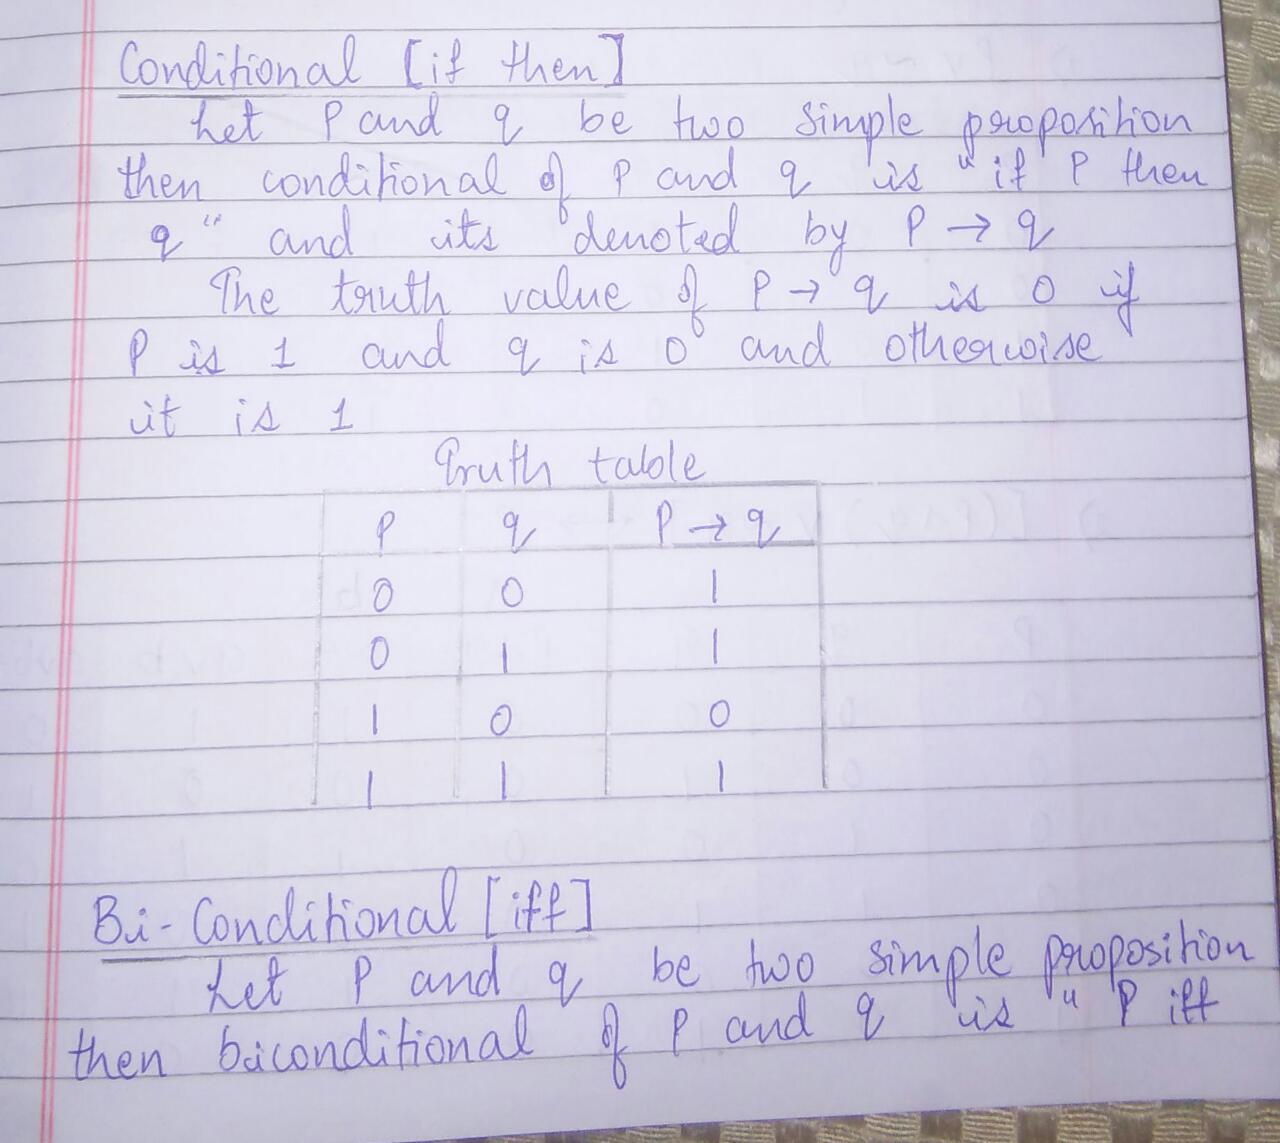 Conditional [if then]
Let P and q be two simple proposition
then conditional of P and q is "if P then
q" and its denoted by P → q
The truth value of P → q is 0 if
P is 1 and q is 0 and otherwise
it is 1
Truth table
P q P → q
0 0 1
0 1 1
1 0 0
1 1 1
Bi-Conditional [iff]
Let P and q be two simple proposition
then biconditional of P and q is " P iff